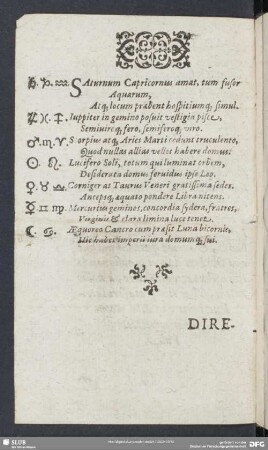 ♄. ♑. ♒. SAturnum Capricornus amat, tum fusor
Aquarum,
Atq; locum præbent hospitiumq; simul.
♃. ♓. ♐. Iuppiter in gemino posuit vestigia pisce,
Semiuiroq; fero, semiferoq; viro.
♂. ♏. ♈. Scorpius atq; Aries Marti cedunt truculento,
Quod nullas alias vellet habere domus.
☉. ♌. Lucifero Soli, totum qui luminat orbem,
Desiderata domus feruidus ipse Leo.
♀. ♉. ♎. Corniger at Taurus Veneri gratissima sedes.
Ancepsq; æquato pondere Libra nitens.
☿. ♊. ♍. Mercurius geminos, concordia sydera, fratres,
Virginis & clara limina luce tenet.
☾. ♋. Æquoreo Cancro cum præsit Luna bicornis,
Hic habet imperii iura domumq; sui.
DIRE-
SLUB